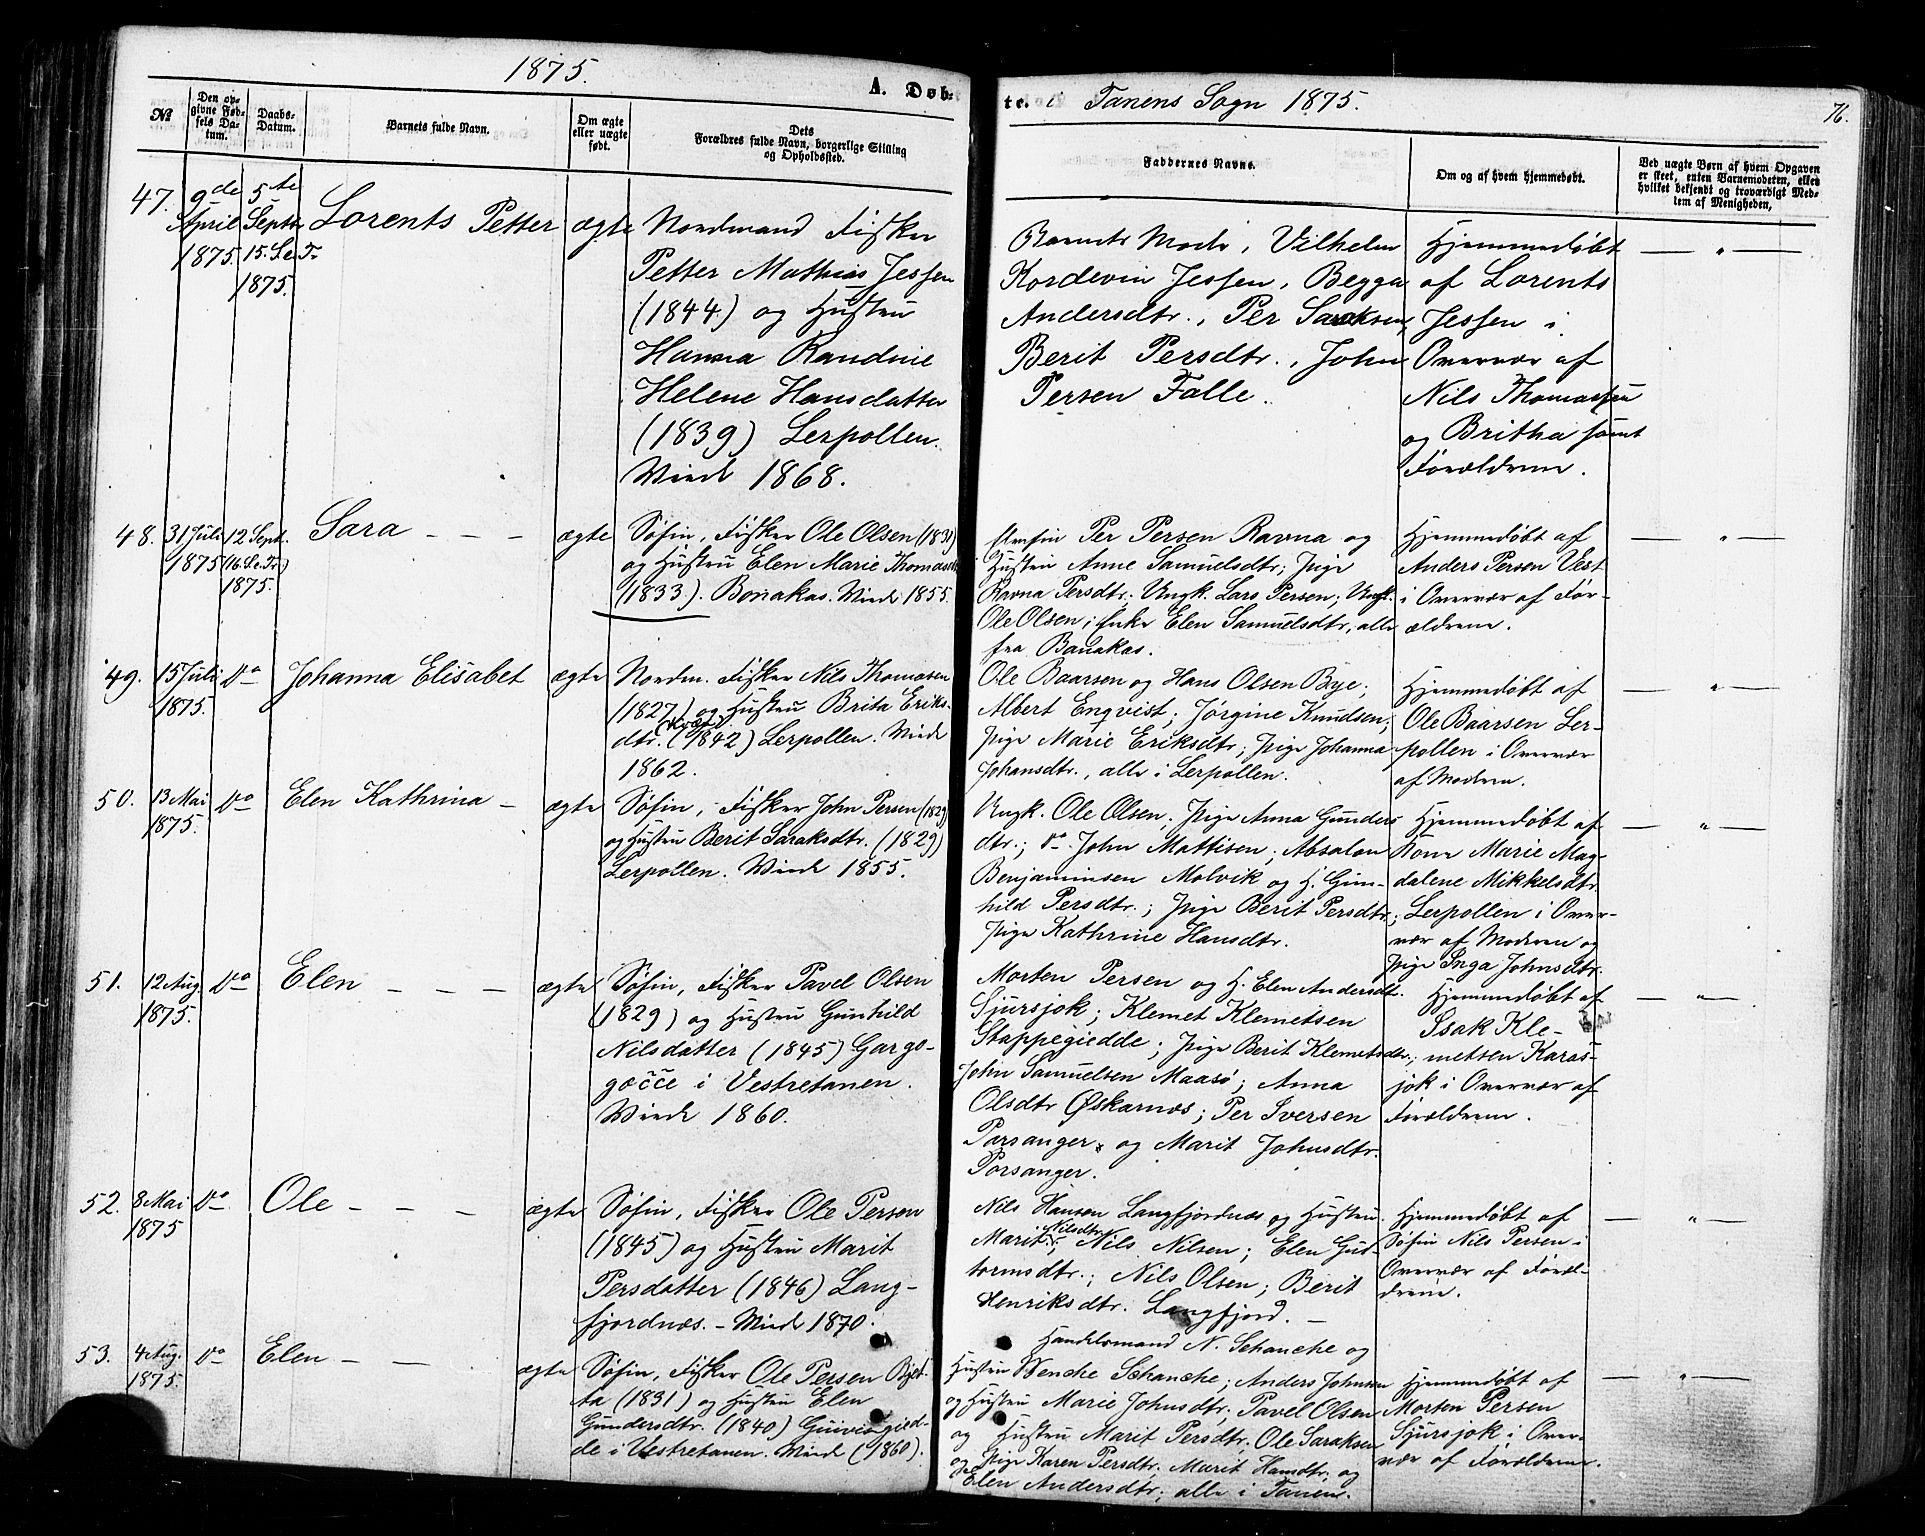 1875.
A. Døb-
№
Den op-
givne Fød-
sels Da-
tum.
Daabs-
Datum.
Barnets fulde Navn.
Om ægte
eller uægte
født.
Dets
Forældres fulde Navn, borgerlige Stilling
og Opholdssted.
47.
9de
April
1875
5te
Septr
15. S. e. Tr.
1875.
Lorents Petter
ægte
Nordmand Fisker
Petter Mathias Jessen
(1844) og Hustru
Hanna Randine
Helene Hansdatter
(1839) Lerpollen.
Viede 1868.
48.
31 Juli
1875
12 Sept.
(16. S. e. Tr.)
1875.
Sara - - -
ægte
Søfin, Fisker Ole Olsen (1831)
og Hustru Elen Marie Thomasdtr
(1833). Bonakas. Viede 1855.
49.
15 Juli
1875.
do
Johanna Elisabet
ægte
Nordm. Fisker Nils Thomasen
(1827) og Hustru Brita Eriks-
dtr. (1842) Lerpollen. Viede
1862.
50.
13 Mai
1875.
do
Elen Kathrina -
ægte
Søfin, Fisker John Persen (1829)
og Hustru Berit Saraksdtr. (1829)
Lerpollen. Viede 1855.
51.
12 Aug.
1875.
do
Elen - - -
ægte
Søfin, Fisker Pavel Olsen
(1829) og Hustru Gunhild
Nilsdatter (1845) Gargo-
gočče i Vestretanen.
Viede 1860.
52.
8 Mai
1875
do
Ole - - -
ægte
Søfin, Fisker Ole Persen
(1845) og Hustru Marit
Persdatter (1846) Lang-
fjordnæs. - Viede 1870.
53.
4 Aug.
1875.
do
Elen - -
ægte
Søfin, Fisker Ole Persen Bjet-
ta (1831) og Hustru Elen
Gundersdtr. (1840) Guivegied-
de i Vestretanen. Viede (1860).
te. i Tanens Sogn 1875.
76.
Faddernes Navne.
Om og af hvem hjemmedøbt.
Ved uægte Børn af hvem Opgaven
er skeet, enten Barnemoderen, eller
hvilket bekjendt og troværdigt Med-
lem af Menigheden,
Barnets Moder, Vilhelm
Kordevin Jessen, Begga
Andersdtr., Per Saraksen,
Berit Persdtr., John
Persen Falle.
Hjemmedøbt
af Lorents
Jessen i
Overvær af
Nils Thomassen
og Britha samt
Forældrene.
— " —
Per Persen Ravna og
Hustru Anne Samuelsdtr; Pige
Ravna Persdtr; Ungk. Lars Persen; Ungk.
Ole Olsen; Enke Elen Samuelsdtr, alle
fra Bonakas.
Hjemmedøbt af
Anders Persen Vest
i Overvær af For-
ældrene.
— " —
Ole Baarsen og Hans Olsen Bye;
Albert Enqvist; Jørgine Knudsen;
Pige Marie Eriksdtr; Pige Johanna
Johansdtr., alle i Lerpollen.
Hjemmedøbt af
Ole Baarsen Ler-
pollen i Overvær
af Moderen.
— " —
Ungk. Ole Olsen; Pige Anna Gunders
dtr.; do. John Mattisen; Absalon
Benjaminsen Molvik og H. Gun-
hild Persdtr.; Pige Berit Persdtr;
Pige Kathrine Hansdtr.
Hjemmedøbt af
Kone Marie Mag-
dalene Mikkelsdtr
Lerpollen i Over-
vær af Moderen og
Pige Inga Johnsdtr.
— " —
Morten Persen og H. Elen Andersdt.
Sjursjok; Klemet Klemetsen
Stappegiedde; Pige Berit Klemetsdtr;
John Samuelsen Maasø; Anna
Olsdtr Øskarnæs; Per Iversen
Porsanger, og Marit Johnsdtr.
Porsanger.
Hjemmedøbt af
Isak Kle-
metsen Karas-
jok i Overvær af
Forældrene.
— " —
Nils Hansen Langfjordnæs og Hustru
Marit Nilsdtr; Nils Nilsen; Elen Gut-
tormsdtr.; Nils Olsen; Berit
Henriksdtr. Langfjord. -
Hjemmedøbt af
Søfin Nils Persen i
Overvær af Foræl-
drene.
— " —
Handelsmand N. Schanche og
Hustru Wenche Schanche; Anders Johnsen
og Hustru Marie Johnsdtr; Pavel Olsen
og Hustru Marit Persdtr; Ole Saraksen
og Pige Karen Persdtr; Marit Hansdtr; og
Elen Andersdtr; alle i Tanen.
Hjemmedøbt af
Morten Persen
Sjursjok i Over-
vær af Forældrene.
— " —